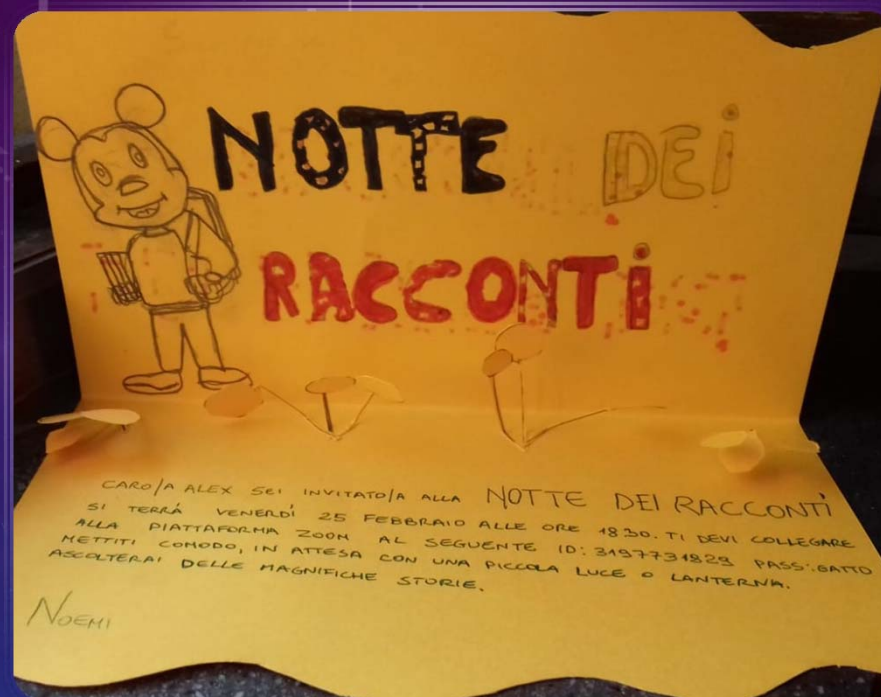 NOTTE DEI
RACCONTI
CARO/A ALEX SEI INVITATO/A ALLA NOTTE DEI RACCONTI
SI TERRÁ VENERDÍ 25 FEBBRAIO ALLE ORE 18 30. TI DEVI COLLEGARE
ALLA PIATTAFORMA ZOOM AL SEGUENTE ID: 3197731829 PASS:GATTO
METTITI COMODO, IN ATTESA CON UNA PICCOLA LUCE O LANTERNA.
ASCOLTERAI DELLE MAGNIFICHE STORIE.
NOEMI